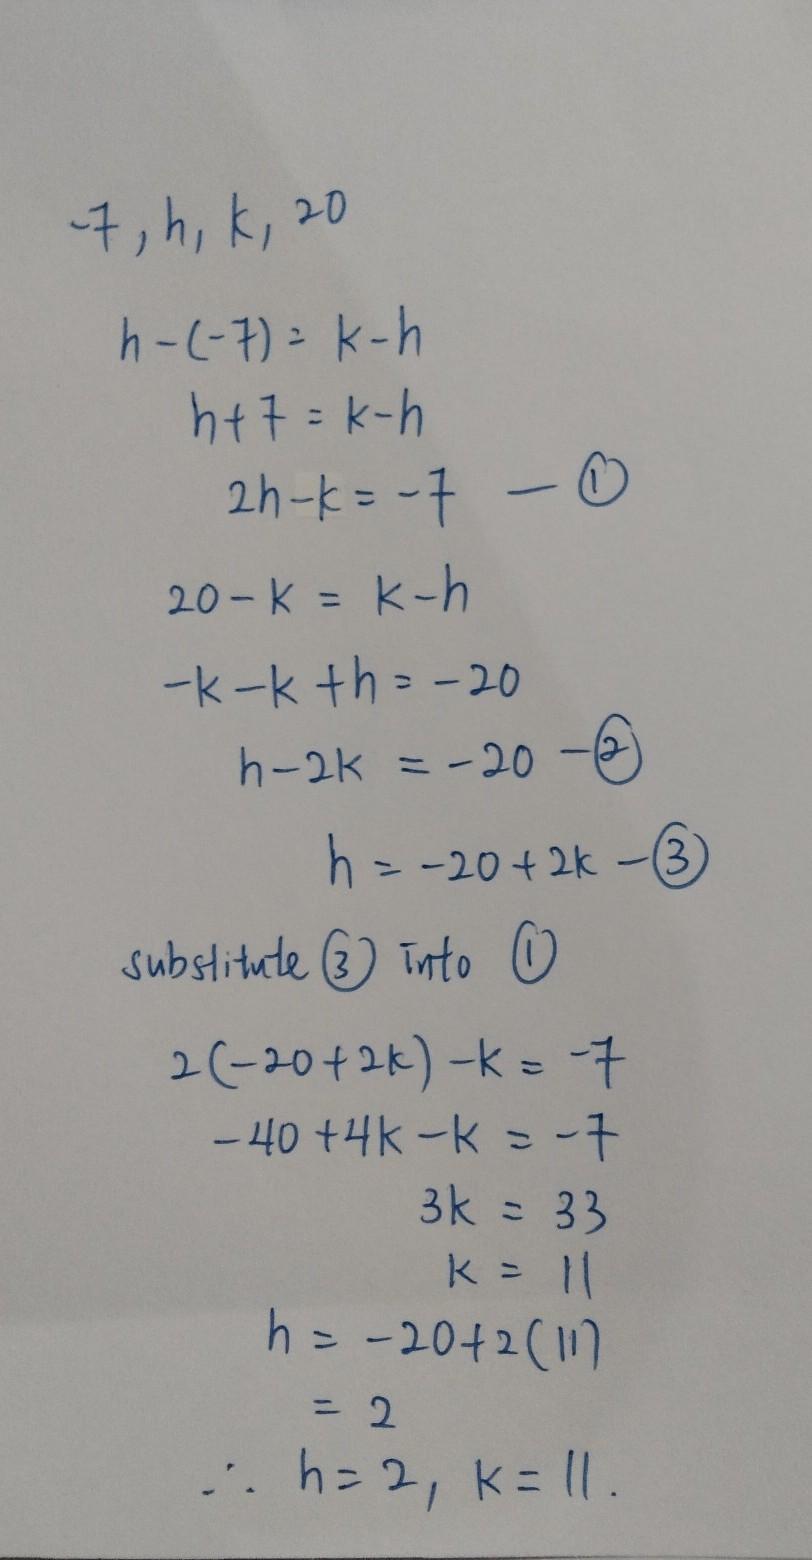 -7, h, k, 20
h-(-7) = k-h
h+7 = k-h
2h-k = -7 — ①
20-k = k-h
-k-k+h = -20
h-2k = -20 - ②
h = -20+2k - ③
substitute ③ into ①
2(-20+2k)-k = -7
-40+4k-k = -7
3k = 33
k = 11
h = -20+2(11)
= 2
∴ h=2, k=11.